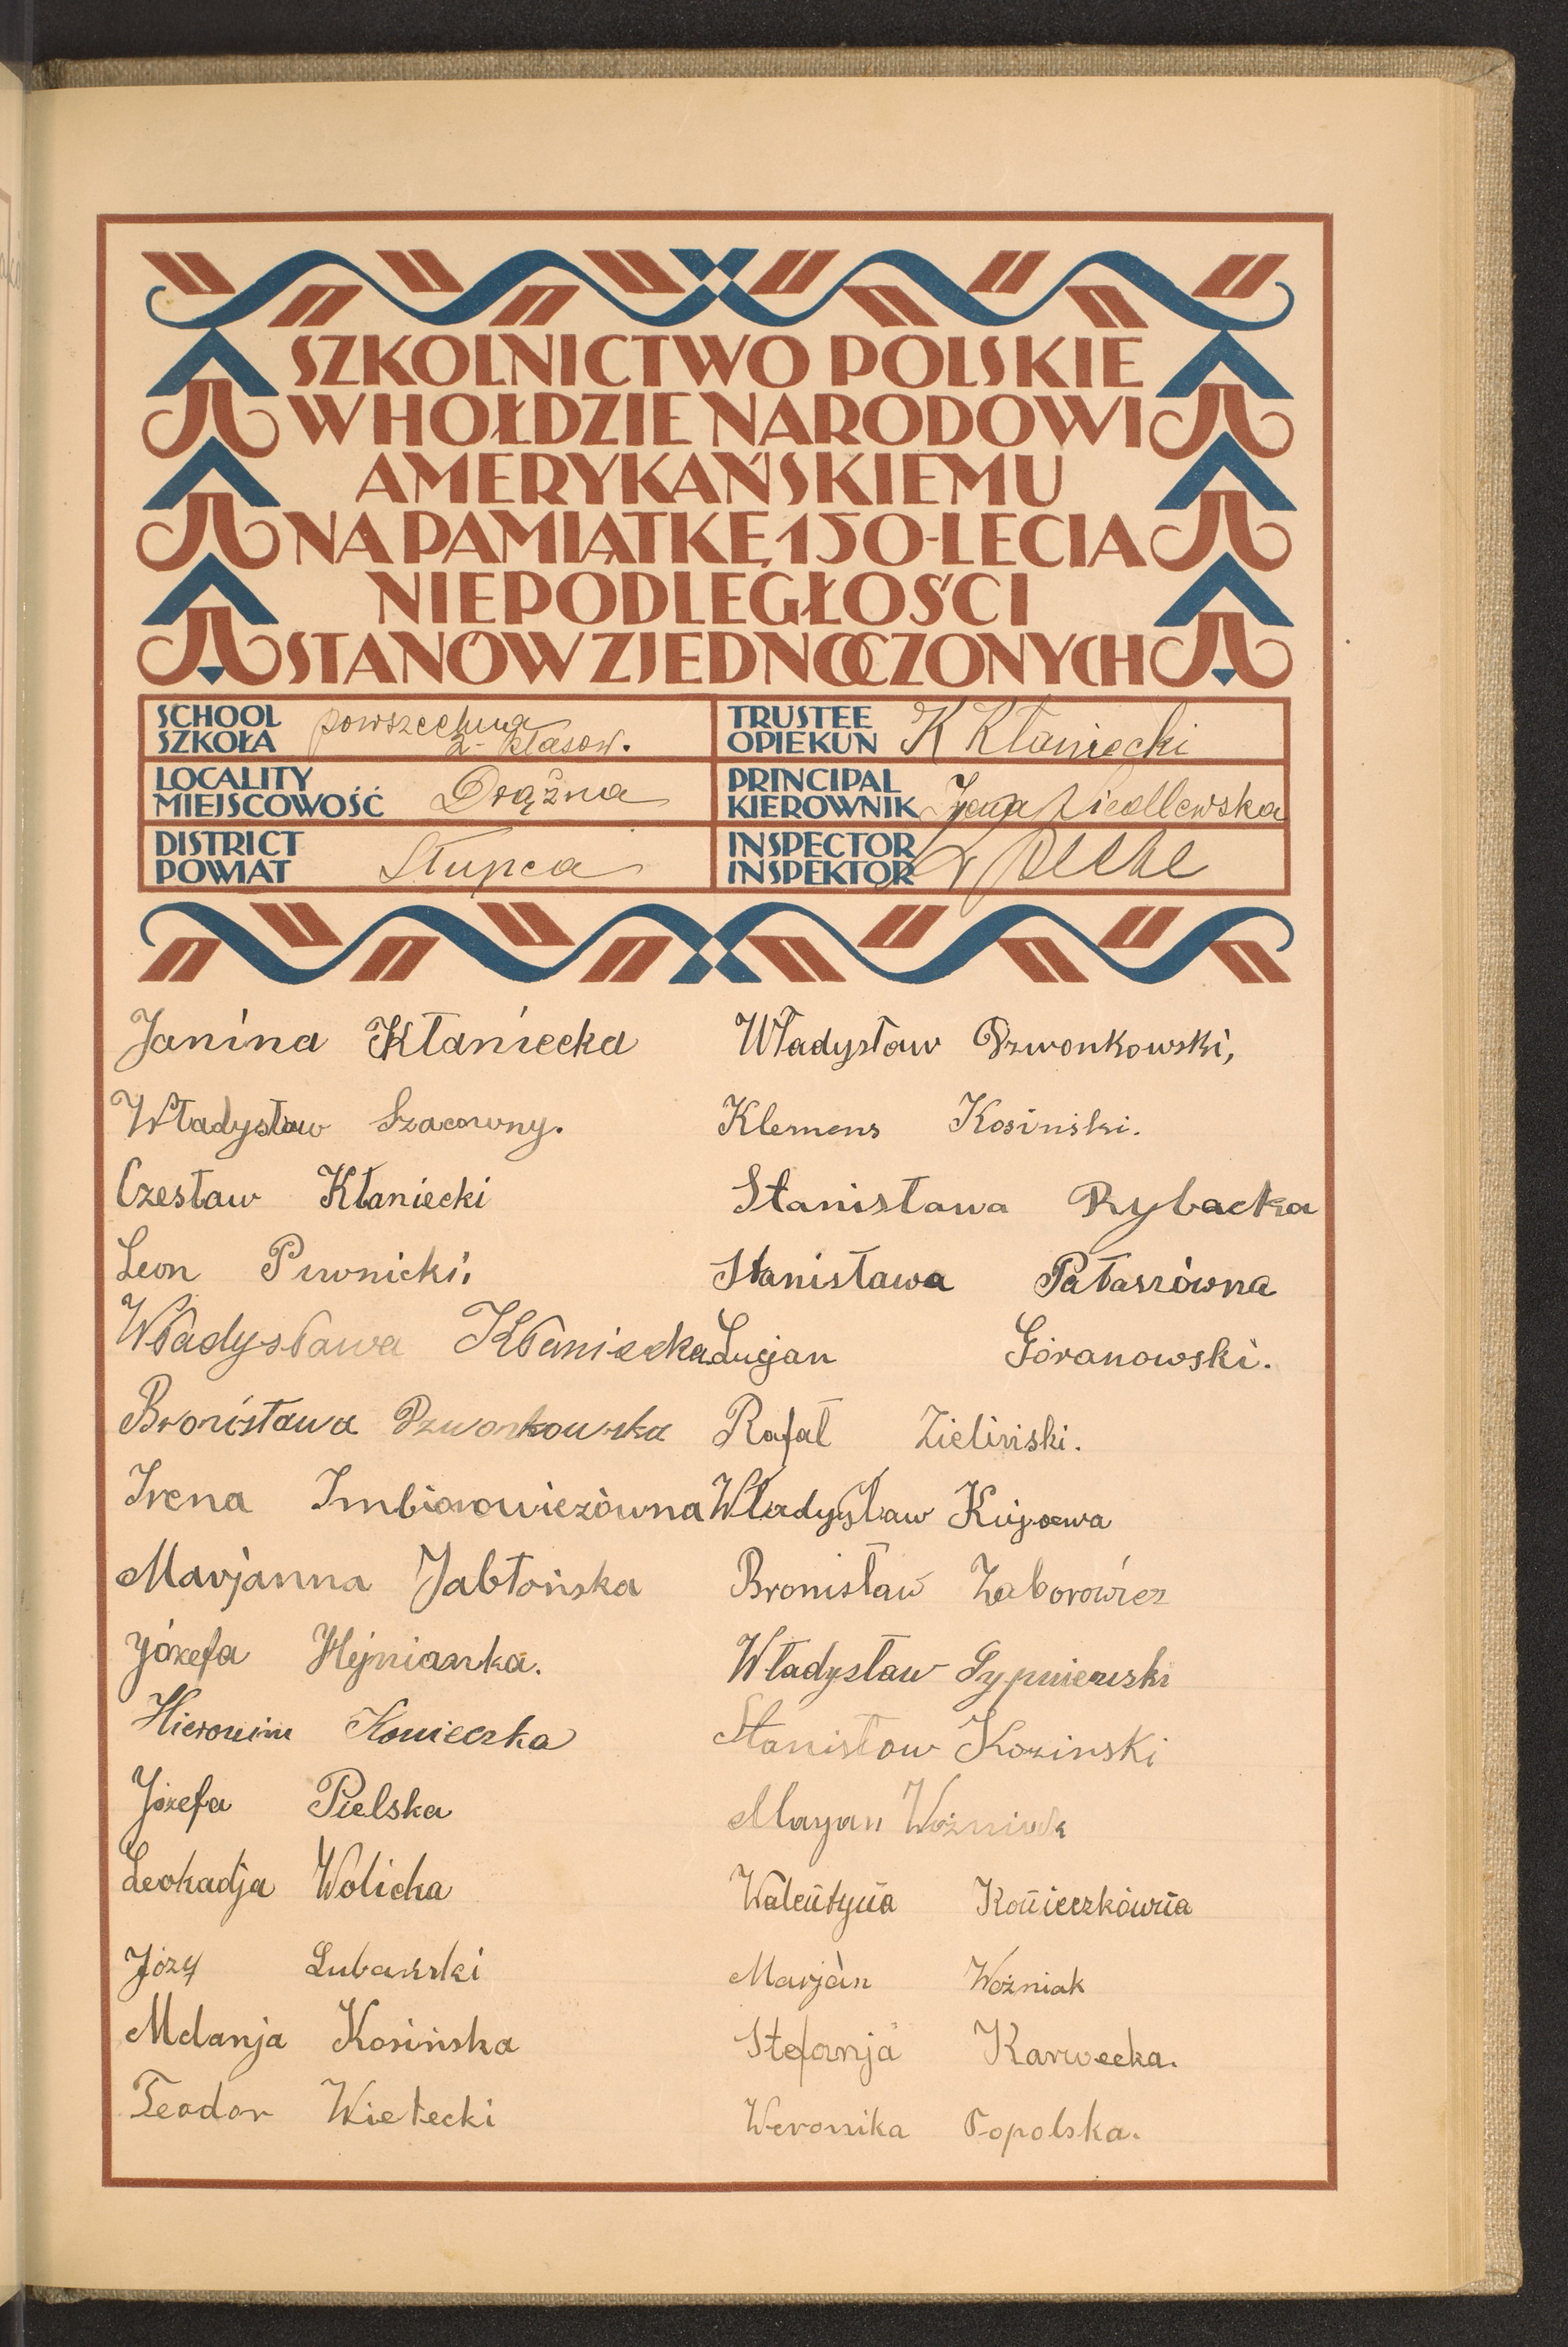 SZKOLNICTWO POLSKIE
W HOŁDZIE NARODOWI
AMERYKAŃSKIEMU
NA PAMIĄTKĘ 150-LECIA
NIEPODLEGŁOŚCI
STANÓW ZJEDNOCZONYCH
SCHOOL
SZKOŁA
powszechna
2-klasow.
TRUSTEE
OPIEKUN
K Kłaniecki
LOCALITY
MIEJSCOWOŚĆ
Drążna
PRINCIPAL
KIEROWNIK
Siedlewska
DISTRICT
POWIAT
Słupca
INSPECTOR
INSPEKTOR
Janina Kłaniecka
Władysław Szacowny.
Czesław Kłaniecki
Leon Piwnicki.
Władysława Kłaniecka
Bronisława Dzwonkowska
Irena Imbiorowiczówna
Marjanna Jabłońska
Józefa Hejniarka.
Hieronim Konieczka
Józefa Pielska
Leokadja Wolicka
Józef Lubański
Melanja Kosińska
Teodor Wietecki
Władysław Dzwonkowski,
Klemens Kosiński.
Stanisława Rybacka
Stanisława Pałaszówna
Lucjan Góranowski.
Rafał Zieliński.
Władysław Kujawa
Bronisław Zaborowicz
Władysław Gypniewski
Stanisław Kozinski
Maryan Woźniak
Walentyna Konieczkówna
Marjan Woźniak
Stefanja Karwecka.
Weronika Topolska.